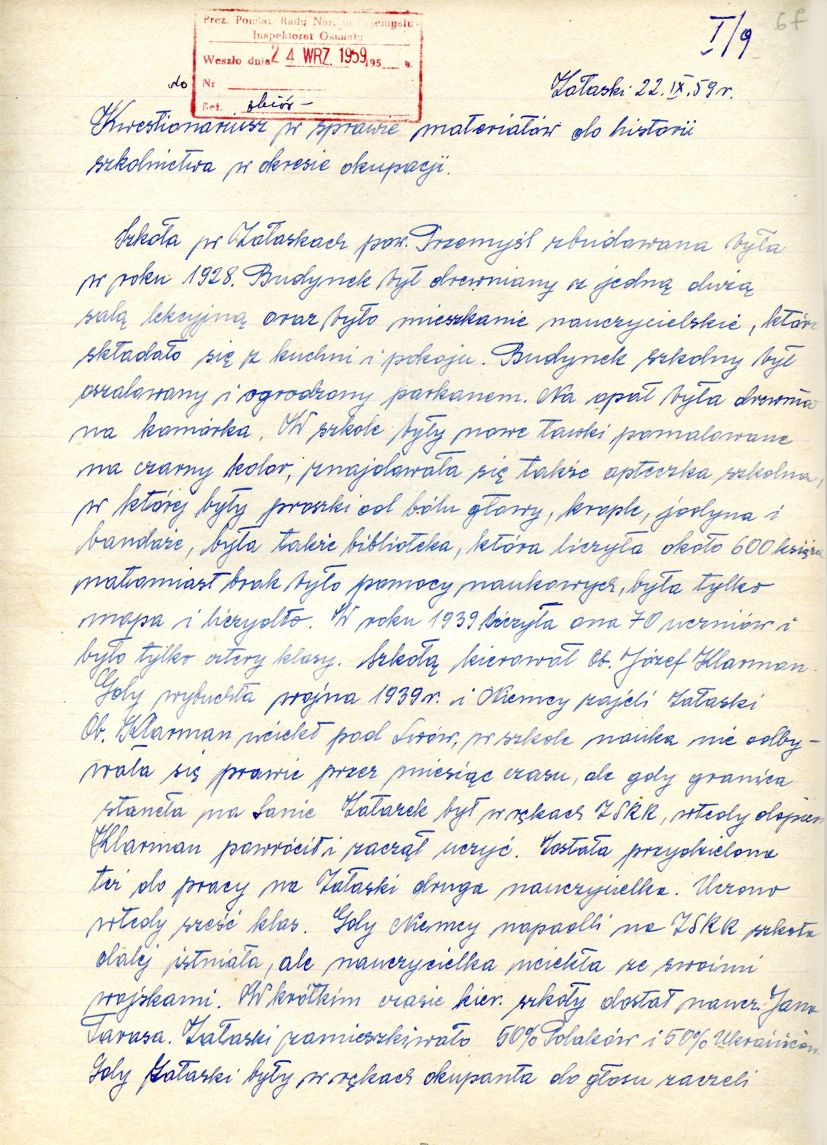 I/9
67
Prez. Powiat. Rady Nar. w Przemyślu
Inspektorat Oświaty
Weszło dnia 24 WRZ. 1959 195 r.
do Nr
Ref. zbiór –
Załaski 22.IX.59 r.
Kwestionariusz w sprawie materiałów do historii
szkolnictwa w okresie okupacji.
Szkoła w Załaskach pow. Przemyśl zbudowana była
w roku 1928. Budynek był drewniany z jedną dużą
salą lekcyjną oraz było mieszkanie nauczycielskie, które
składało się z kuchni i pokoju. Budynek szkolny był
oszalowany i ogrodzony parkanem. Na opał była drewnia
na komórka. W szkole były nowe ławki pomalowane
na czarny kolor, znajdowała się także apteczka szkolna,
w której były proszki od bólu głowy, krople, jodyna i
bandaże, była także biblioteka, która liczyła około 600 książek
natomiast brak było pomocy naukowych, była tylko
mapa i liczydło. W roku 1939 liczyła ona 70 uczniów i
było tylko cztery klasy. Szkołą kierował Ob. Józef Klarman.
Gdy wybuchła wojna 1939 r. i Niemcy zajęli Załaski
Ob. Klarman uciekł pod Lwów, w szkole nauka nie odby-
wała się prawie przez miesiąc czasu, ale gdy granica
stanęła na Sanie Załazek był w rękach ZSRR, wtedy dopiero
Klarman powrócił i zaczął uczyć. Została przydzielona
też do pracy na Załaski druga nauczycielka. Uczono
wtedy sześć klas. Gdy Niemcy napadli na ZSRR szkoła
dalej istniała, ale nauczycielka uciekła ze swoimi
wojskami. W krótkim czasie kier. szkoły dostał naucz. Jana
Tarasa. Załaski zamieszkiwało 50% Polaków i 50% Ukraińców.
Gdy Załaski były w rękach okupanta do głosu zaczęli